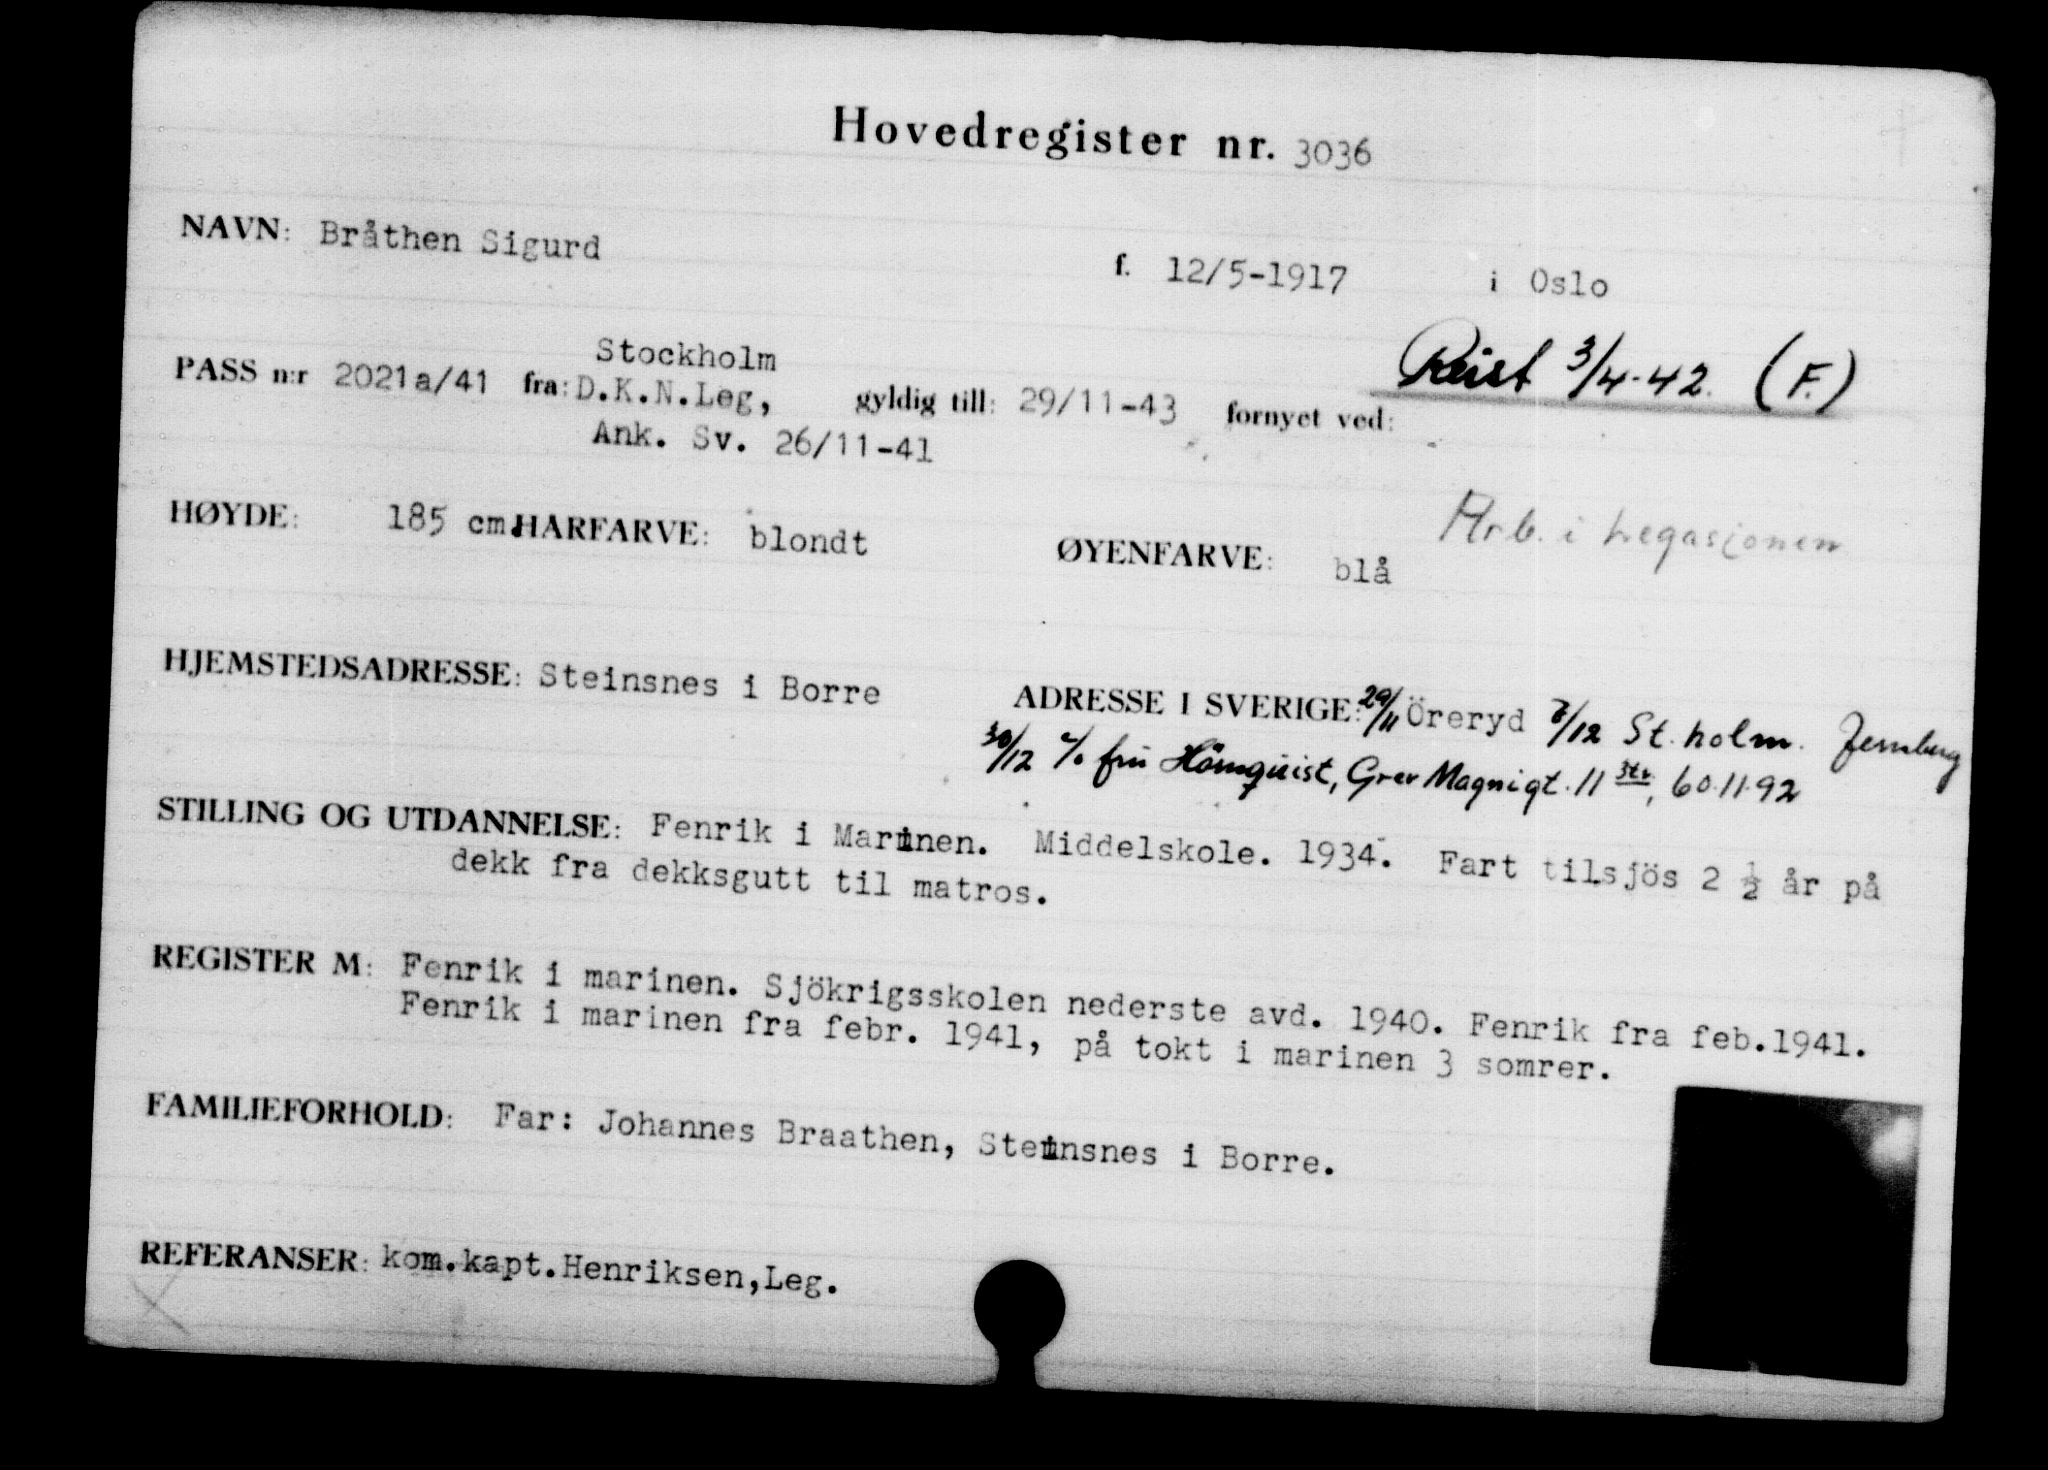 Hovedregister nr. 3036
NAVN: Bråthen Sigurd f. 12/5-1917 i Oslo
Reist 3/4-42. (F.)
Stockholm
PASS n:r 2021a/41 fra: D.K.N.Leg, gyldig till: 29/11-43 fornyet ved:
Ank. Sv. 26/11-41
Arb. i Legasjonen
HØYDE: 185 cm. HARFARVE: blondt ØYENFARVE: blå
HJEMSTEDSADRESSE: Steinsnes i Borre ADRESSE I SVERIGE: 29/11 Öreryd /12 St.holm.
30/12 c/o fru Hörnquist, Grev Magnigt. 11 3tr, 60.11.92
STILLING OG UTDANNELSE: Fenrik i Marinen. Middelskole. 1934. Fart tilsjös 2 ½ år på
dekk fra dekksgutt til matros.
REGISTER M: Fenrik i marinen. Sjökrigsskolen nederste avd. 1940. Fenrik fra feb.1941.
Fenrik i marinen fra febr. 1941, på tokt i marinen 3 somrer.
FAMILIEFORHOLD: Far: Johannes Braathen, Steinsnes i Borre.
REFERANSER: kom.kapt.Henriksen,Leg.